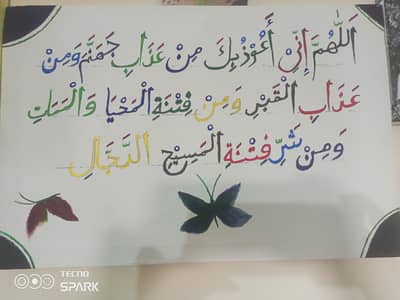 اَللّٰهُمَّ اِنِّیْ أَعُوْذُ بِكَ مِنْ عَذَابِ جَهَنَّمَ وَمِنْ
عَذَابِ الْقَبْرِ وَمِنْ فِتْنَةِ الْمَحْيَا وَالْمَمَاتِ
وَمِنْ شَرِّ فِتْنَةِ الْمَسِيْحِ الدَّجَّالِ
TECNO
SPARK